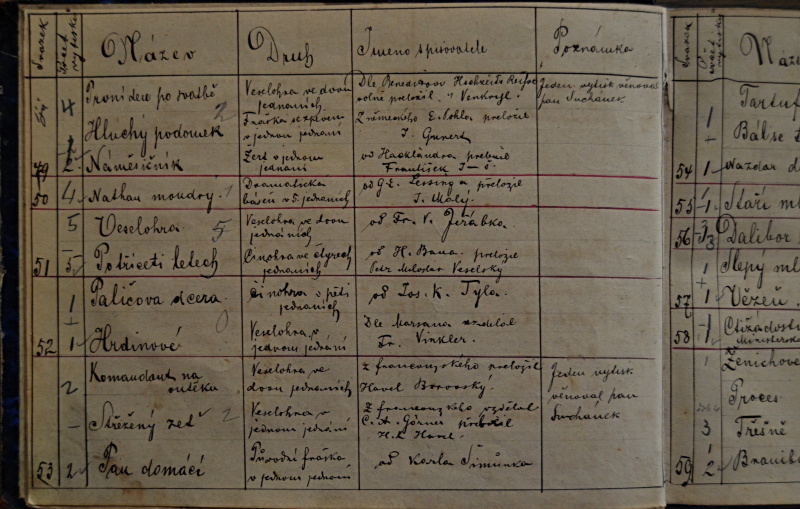 Svazek Počet výtisků Název Druh Jméno spisovatele Poznámka
4 První dere po svatbě 2 Veselohra ve dvou jednáních. Dle Benedixova přeložil V. Venkryl. Jeden výtisk věnoval pan Suchanek
Hluchý podomek Fraška se zpěvem v jednom jednání Z německého E. Pohla přeložil J. Gunert
2 Náměsíčník Žert v jednom jednání od Hackländra přeložil František
50 4 Nathan moudrý. 1 Dramatická báseň v 5. jednáních od G. E. Lessinga přeložil J. Malý.
5 Veselohra 5 Veselohra ve dvou jednáních od Fr. V. Jeřábka.
51 5 Po třiceti letech Činohra ve čtyrech jednáních od H. Bana. přeložil Petr Miloslav Veselský
1 Paličova dcera. činohra v pěti jednáních od Jos. K. Tyla.
52 1 Hrdinové 0 Veselohra v jednom jednání Dle Marsana vzdělal Fr. Vinkler.
2 Komandant na outěku Veselohra ve dvou jednáních Z francouzského přeložil Havel Borovský. Jeden výtisk věnoval pan Suchanek
– Střežený zeť 2 Veselohra v jednom jednání Z francouzského vzdělal C. A. Görner přeložil H. L. Havel.
53 2 Pan domácí Původní fraška v jednom jednání od Karla Šimůnka
Svazek Počet výtisků Náze
1 Tartuf
+ Bálse
54 1 Nazdar
55 1 Staří ml
56 3 Dalibor
1 Slepý ml
57 1 Vězeň
58 1 Ctižádost
Ministersk
1 Ženichové
Proces
3 Třešně
59 2 Branibo